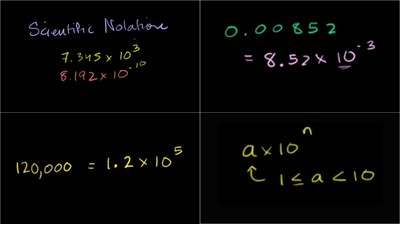 Scientific Notation
7.345 × 10³
8.192 × 10⁻¹⁰
0.00852
= 8.52 × 10⁻³
120,000 = 1.2 × 10⁵
a × 10ⁿ
1 ≤ a < 10